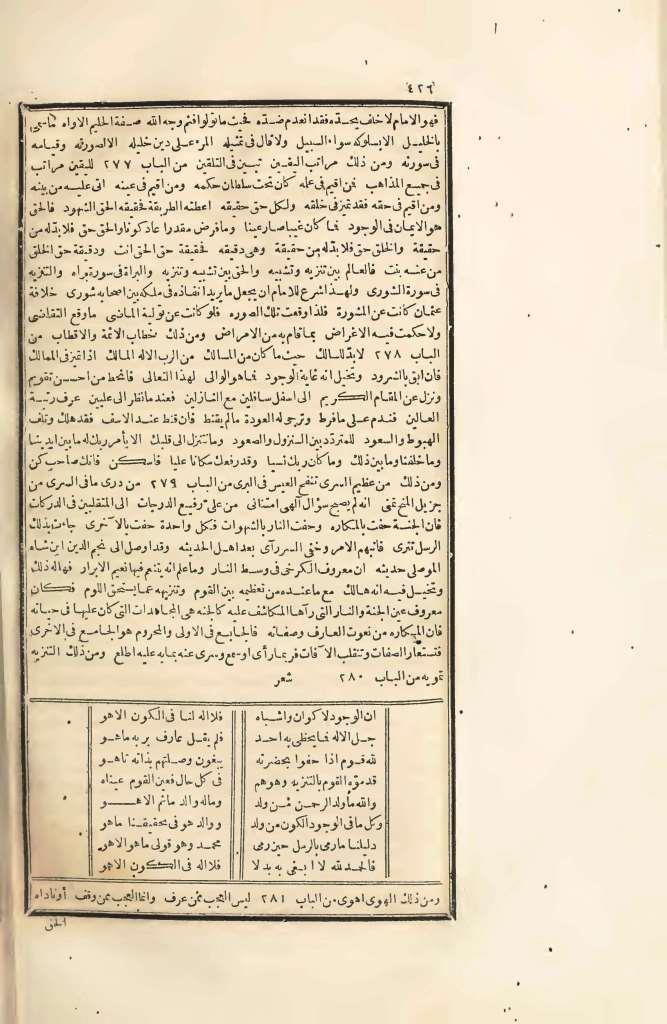 ٤٢٦
فهو الامام لا خلف يحده فقد انعدم ضده فحيث ما تولوا فثم وجه الله صفة الحليم الاواه ما سمى
بالخليل الا بسلوكه سواء السبيل ولا قال فى تمثيله المرء على دين خليله الا لصورته وقيامه
فى سورته ومن ذلك مراتب اليقين تبيين فى التلقين من الباب ٢٧٧ لليقين مراتب
فى جميع المذاهب فمن اقيم فى علمه كان تحت سلطان حكمه ومن اقيم فى عينه اتى عليه من بينه
ومن اقيم فى حقه فقد تميز فى خلقه ولكل حق حقيقه اعطته الطريقة فحقيقة الحق الشهود فالحق
هو الايمان فى الوجود فما كان غيبا صار عينا وما فرض مقدرا عاد كونا والحق حق فلا بد له من
حقيقة والخلق حق فلا بد له من حقيقة وهى دقيقه فحقيقة حق الحق انت ودقيقة حق الخلق
من عنه بنت فالعالم بين تنزيه وتشبيه والحق بين تشبيه وتنزيه والبراءة فى سورة براه والتنزيه
فى سورة الشورى ولهذا شرع للامام ان يجعل ما يريد انفاذه فى ملكه بين اصحابه شورى خلافة
عثمان كانت عن المشورة فلذا وقعت تلك الصوره فلو كانت عن تولية الماضى ما وقع التقاضى
ولا حكمت فيه الاغراض بما قام به من الامراض ومن ذلك خطاب الائمة والاقطاب من
الباب ٢٧٨ لا بد للسالك حيث ما كان من المسالك من الرب الاله المالك اذا تميز فى الممالك
فان ابق بالشرود وتخيل انه غاية الوجود فما هو الوالى لهذا التعالى فانحط من احسن تقويم
ونزل عن المقام الكريم الى اسفل سافلين مع النازلين فعند ما نظر الى عليين عرف رتبة
العالين فندم على ما فرط وترجو له العودة ما لم يقنط فان قنط عند الاسف فقد هلك وتلف
الهبوط والسعود للمتردد بين النزول والصعود وما تنزل الى قلبك الا بأمر ربك له ما بين ايدينا
وما خلفنا وما بين ذلك وما كان ربك نسيا وقد رفعك مكانا عليا فاسكن فانك صاحب كن
ومن ذلك من عظيم السرى تنفخ العيس فى البرى من الباب ٢٧٩ من درى ما فى السرى من
جزيل المنح تمنى انه لم يصبح سؤال آلهى امتنانى من على رفيع الدرجات الى المتقلبين فى الدركات
فان الجنة حفت بالمكاره وحفت النار بالشهوات فكل واحدة حفت بالآخرى جاءت بذلك
الرسل تترى فأتبهم الامر وخفى السر رآى بعد اهل الحديثه وقد اوصل الى نجم الدين ابن شاه
الموصلى حديثه ان معروف الكرخى فى وسط النار وما علم انه يتنعم فيها نعيم الابرار فهاله ذلك
وتخيل فيه انه هالك مع ما عنده من تعظيمه بين القوم وتنزيهه عما يستحق اللوم فكان
معروف عين الجنة والنار التى رآها المكاشف عليه كالجنه هى المجاهدات التى كان عليها فى حياته
فان المكاره من نعوت العارف وصفاته فالجامع فى الاولى والمحروم هو الجامع فى الاخرى
فتستعار الصفات وتنقلب الآفات فربما رأى او سمع وسرى عنه بما به عليه اطلع ومن ذلك التنزيه
تمويه من الباب ٢٨٠ شعر
ان الوجود لا كوان واشباه فلا اله لنا فى الكون الا هو
جل الاله فما يحظى به احد فلم يقل عارف بربه ما هو
لله قوم اذا حفوا بحضرته يبغون وصلتهم بذاته تاهوا
قد موه القوم بالتنزيه وهو هم فى كل حال فعين القوم عيناه
والله ما ولد الرحمن من ولد وما له والد ما ثم الا هو
وكل ما فى الوجود الكون من ولد ووالد هو فى تحقيقنا ما هو
دليلنا ما رمى بالرمل حين رمى محمد وهو قولى ما هو الا هو
فالحمد لله لا ابغى به بدلا فلا اله فى الكون الا هو
ومن ذلك الهوى اهوى من الباب ٢٨١ ليس العجب ممن عرف وانما العجب ممن وقف أو ناداه
الحق